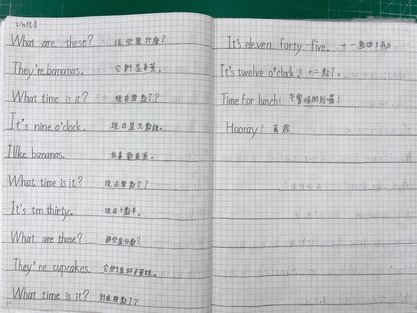 Unit 1
What are these? 這些是什麼?
They're bananas. 它們是香蕉。
What time is it? 現在幾點了?
It's nine o'clock. 現在是九點鐘。
I like bananas. 我喜歡香蕉。
What time is it? 現在幾點了?
It's ten thirty. 現在十點半。
What are those? 那些是什麼?
They're cupcakes. 它們是杯子蛋糕。
What time is it? 現在幾點了?
It's eleven forty-five. 十一點四十五分
It's twelve o'clock. 十二點了。
Time for lunch! 午餐時間到囉!
Hooray! 萬歲